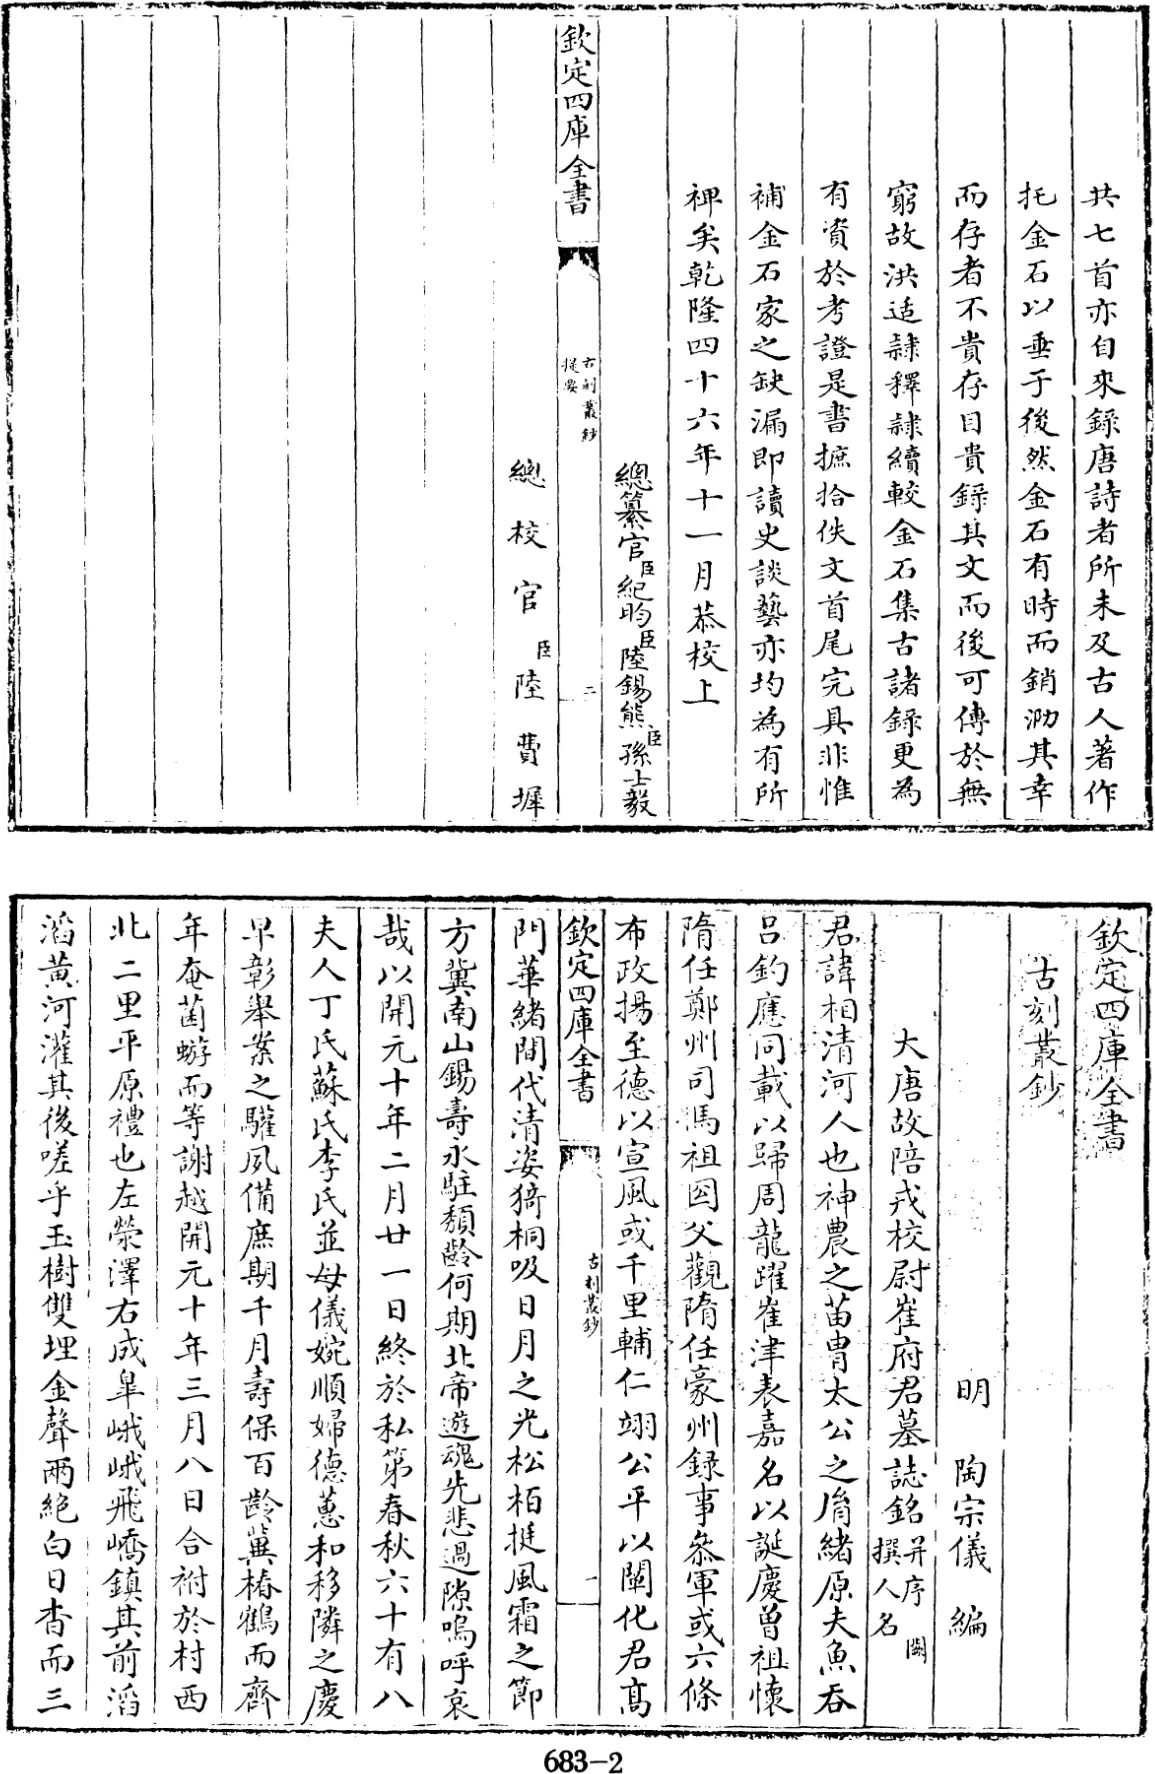 共七首亦自來錄唐詩者所未及古人著作
托金石以垂于後然金石有時而銷泐其幸
而存者不貴存目貴錄其文而後可傳於無
窮故洪适隸釋隸續較金石集古諸錄更為
有資於考證是書摭拾佚文首尾完具非惟
補金石家之缺漏即讀史談藝亦均為有所
裨矣乾隆四十六年十一月恭校上
總纂官臣紀昀臣陸錫熊臣孫士毅
欽定四庫全書
古刻叢鈔
提要
二
總校官臣陸費墀
欽定四庫全書
古刻叢鈔
明 陶宗儀 編
大唐故陪戎校尉崔府君墓誌銘并序 撰人名闕
君諱相清河人也神農之苗胄太公之胤緒原夫魚吞
呂釣應同載以歸周龍躍崔津表嘉名以誕慶曾祖懷
隋任鄭州司馬祖因父觀隋任豪州錄事叅軍或六條
布政揚至德以宣風或千里輔仁翊公平以闡化君髙
欽定四庫全書
古刻叢鈔
一
門華緒間代清姿猗桐吸日月之光松栢挺風霜之節
方冀南山錫壽永駐頽齡何期北帝遊魂先悲過隙嗚呼哀
哉以開元十年二月廿一日終於私第春秋六十有八
夫人丁氏蘇氏李氏並母儀婉順婦德蕙和移隣之慶
早彰舉案之驩夙備庶期千月壽保百齡冀椿鶴而齊
年奄菌蝣而等謝越開元十年三月八日合祔於村西
北二里平原禮也左滎澤右成臯峨峨飛嶠鎮其前滔
滔黄河灌其後嗟乎玉樹雙埋金聲兩絶白日杳而三
683-2